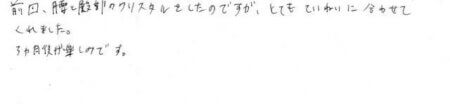 前回、腰と殿部のクリスタルをしたのですが、とてもていねいに合わせて
くれました。
3ヵ月後が楽しみです。